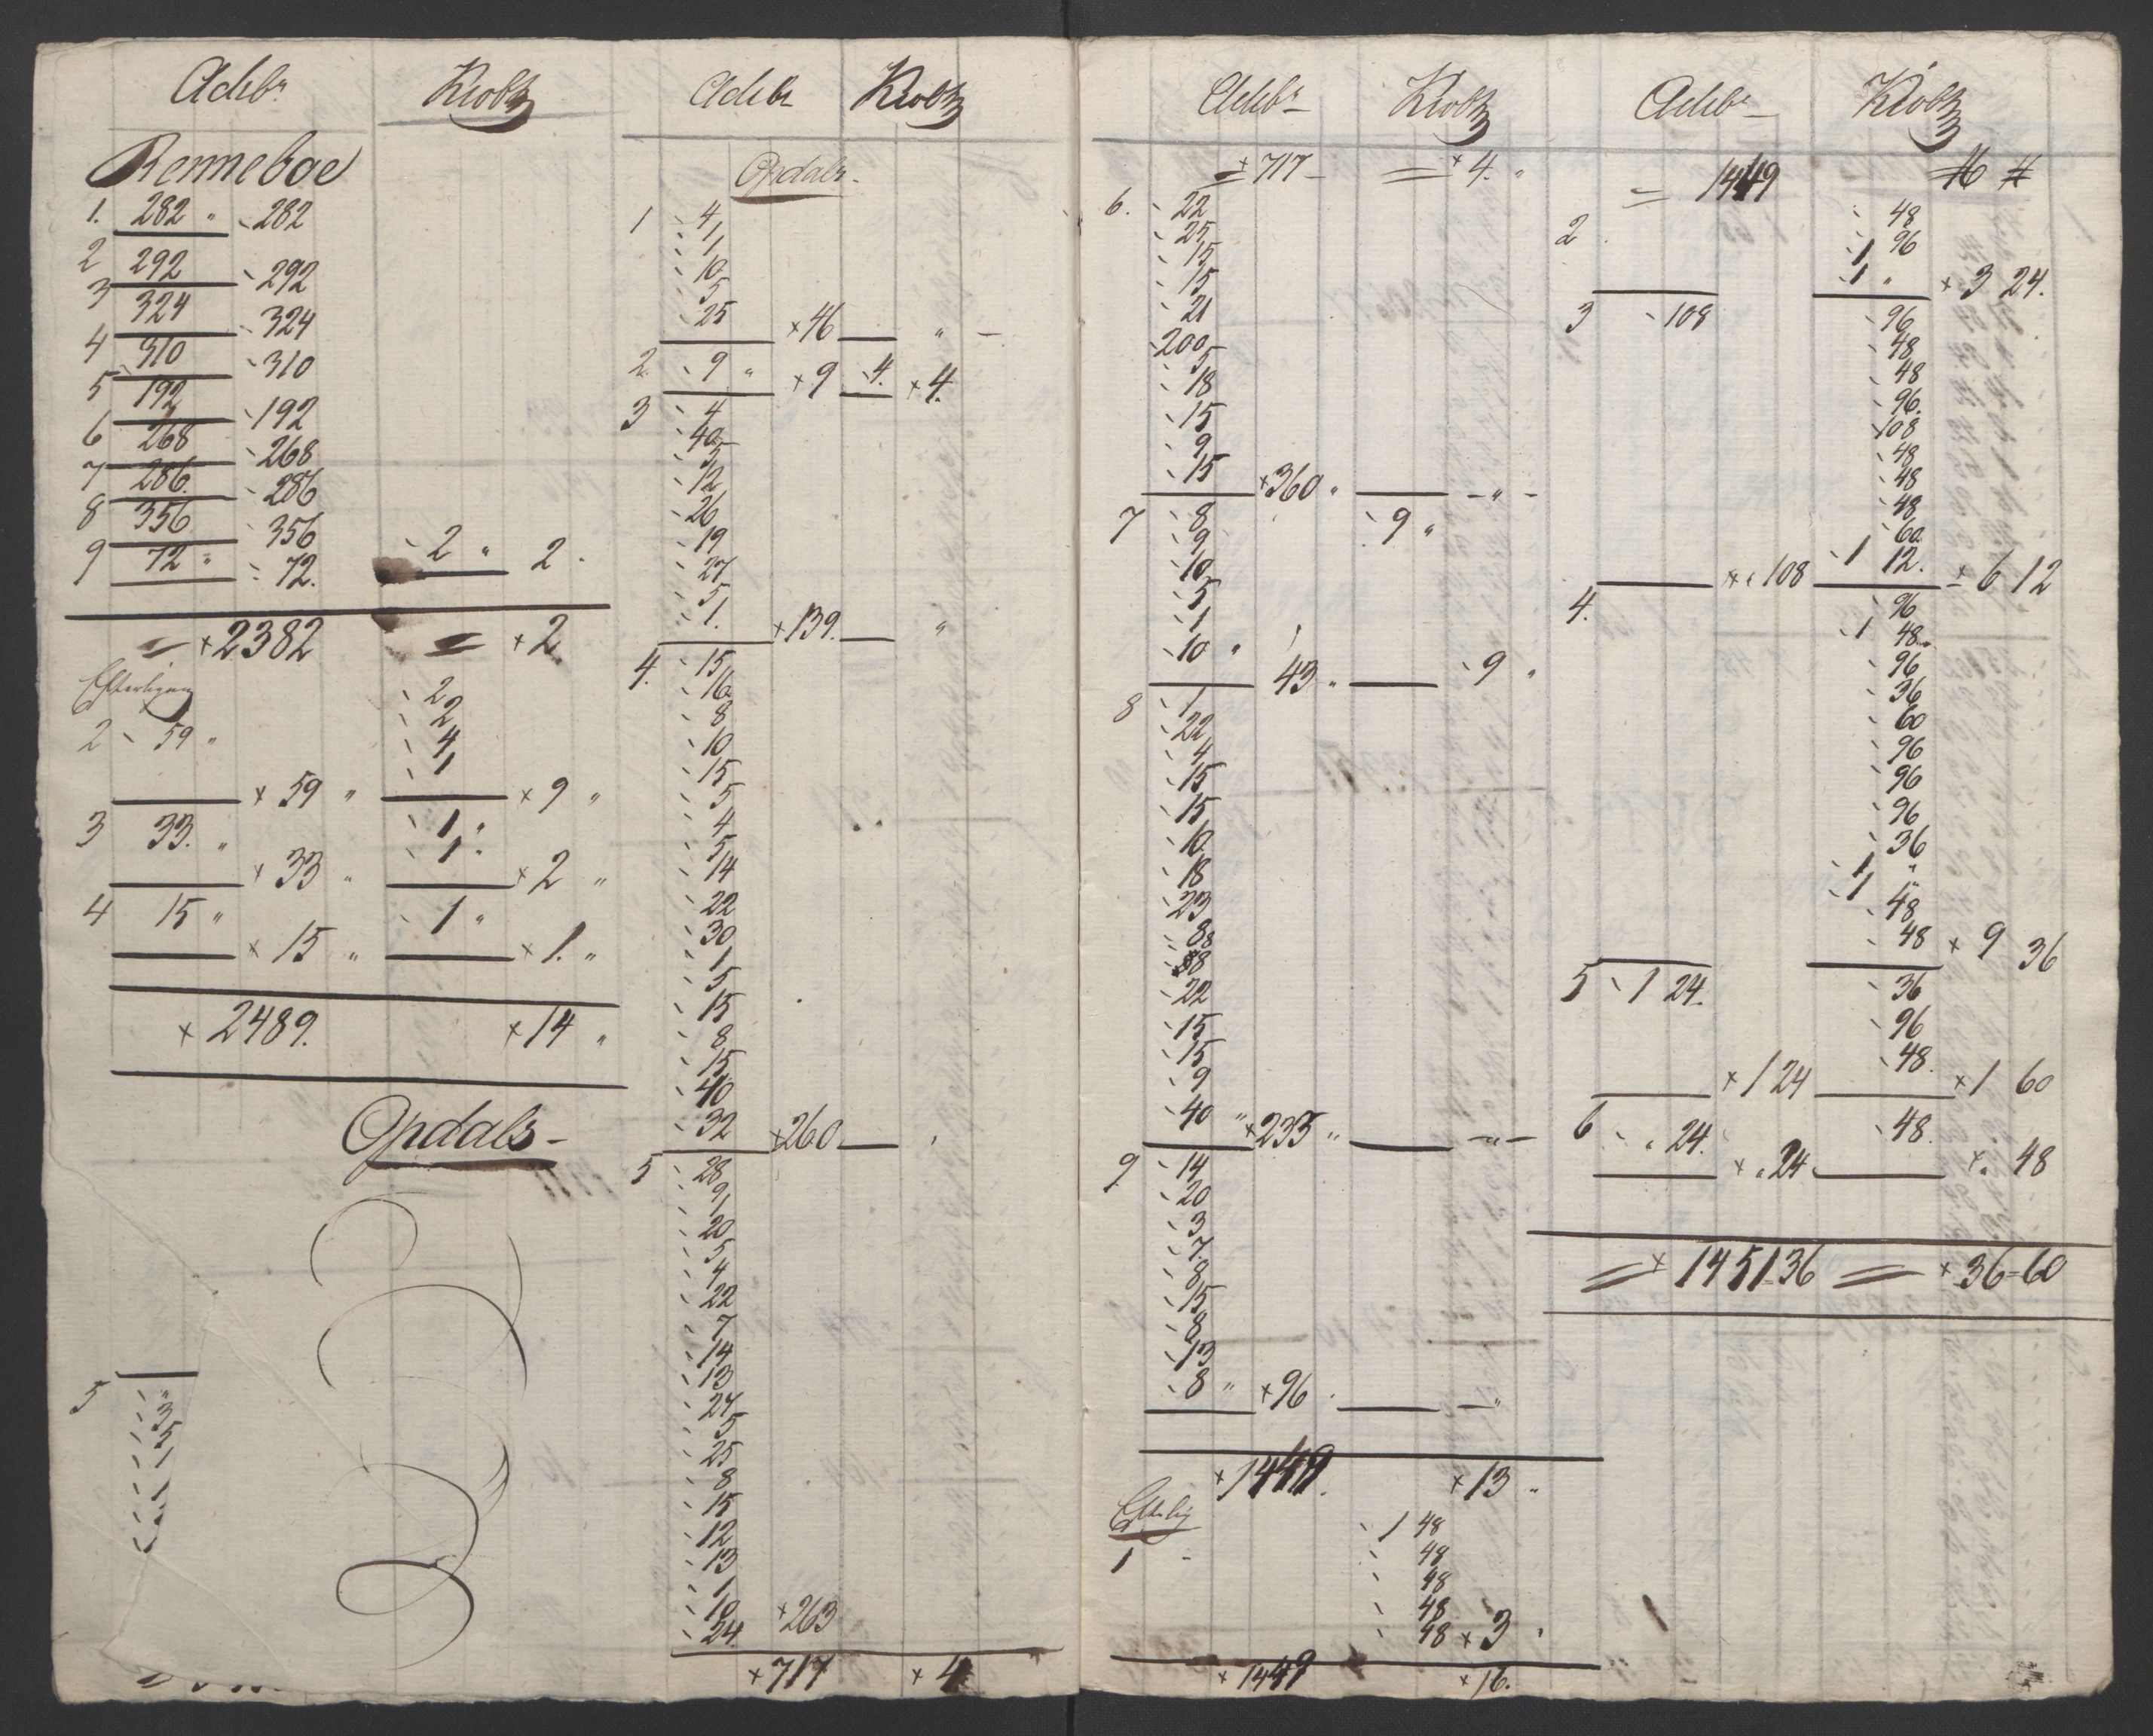 Renneboe
1. 282 " 282
2 292 292
3 324 324
4 310 310
5 192 192
6 268 268
7 286. 286
8 356 356
9 72 " 72. 2 " 2.
= × 2382 = × 2
2 59 "
2
2
4
1
× 59 " × 9 "
3 33. " 1 "
1 "
× 33 " × 2 "
4 15 " 1 "
× 15 " × 1. "
× 2489. × 14 "
Opdals
5 "
3
5
1
Opdals
1 4
1
1
10
5
25 × 46 "
2. 9 " × 9 4. × 4.
3 4
40
5
12
26
19
27
5
1. × 139. "
4. 15
16
8
10
15
5
4
5
14
22
30
1
5
15
8
15
40
32 × 260
5 28
9
1
20
5
4
22
7
14
13
27
5
25
8
15
12
13
1
10 × 263
24
× 717 × 4
= × 717 = × 4. "
6. 22
25
15
15
21
200
5
18
15
9
15 × 360 " - " -
7 8 9 "
9
10
5
1
10 "
43 " 9 "
8 1
22
4
15
15
10
18
23
8
22
15
15
9
40 " × 235 " - " -
9 14
20
3
7
8
15
8
13
8 " × 96 - "
× 1449. × 13 "
1 1 48
48
48
48
48 × 3 "
× 1449 × 16.
= 1449 16 #
2 48
96
1
1 " × 3 24.
3 108 96
48
48
96.
108
48
48
48
60
1 12.
× " 108 × 6 12
4. 96
1 48
96
36
60
96
96
96
36
1 "
1 48
48 × 9 36
5 1 24. 36
96
48.
× 1 24 × 1 60
6 " 24. 48.
× " 24 × " 48
= × 1451 36 = × 36=60